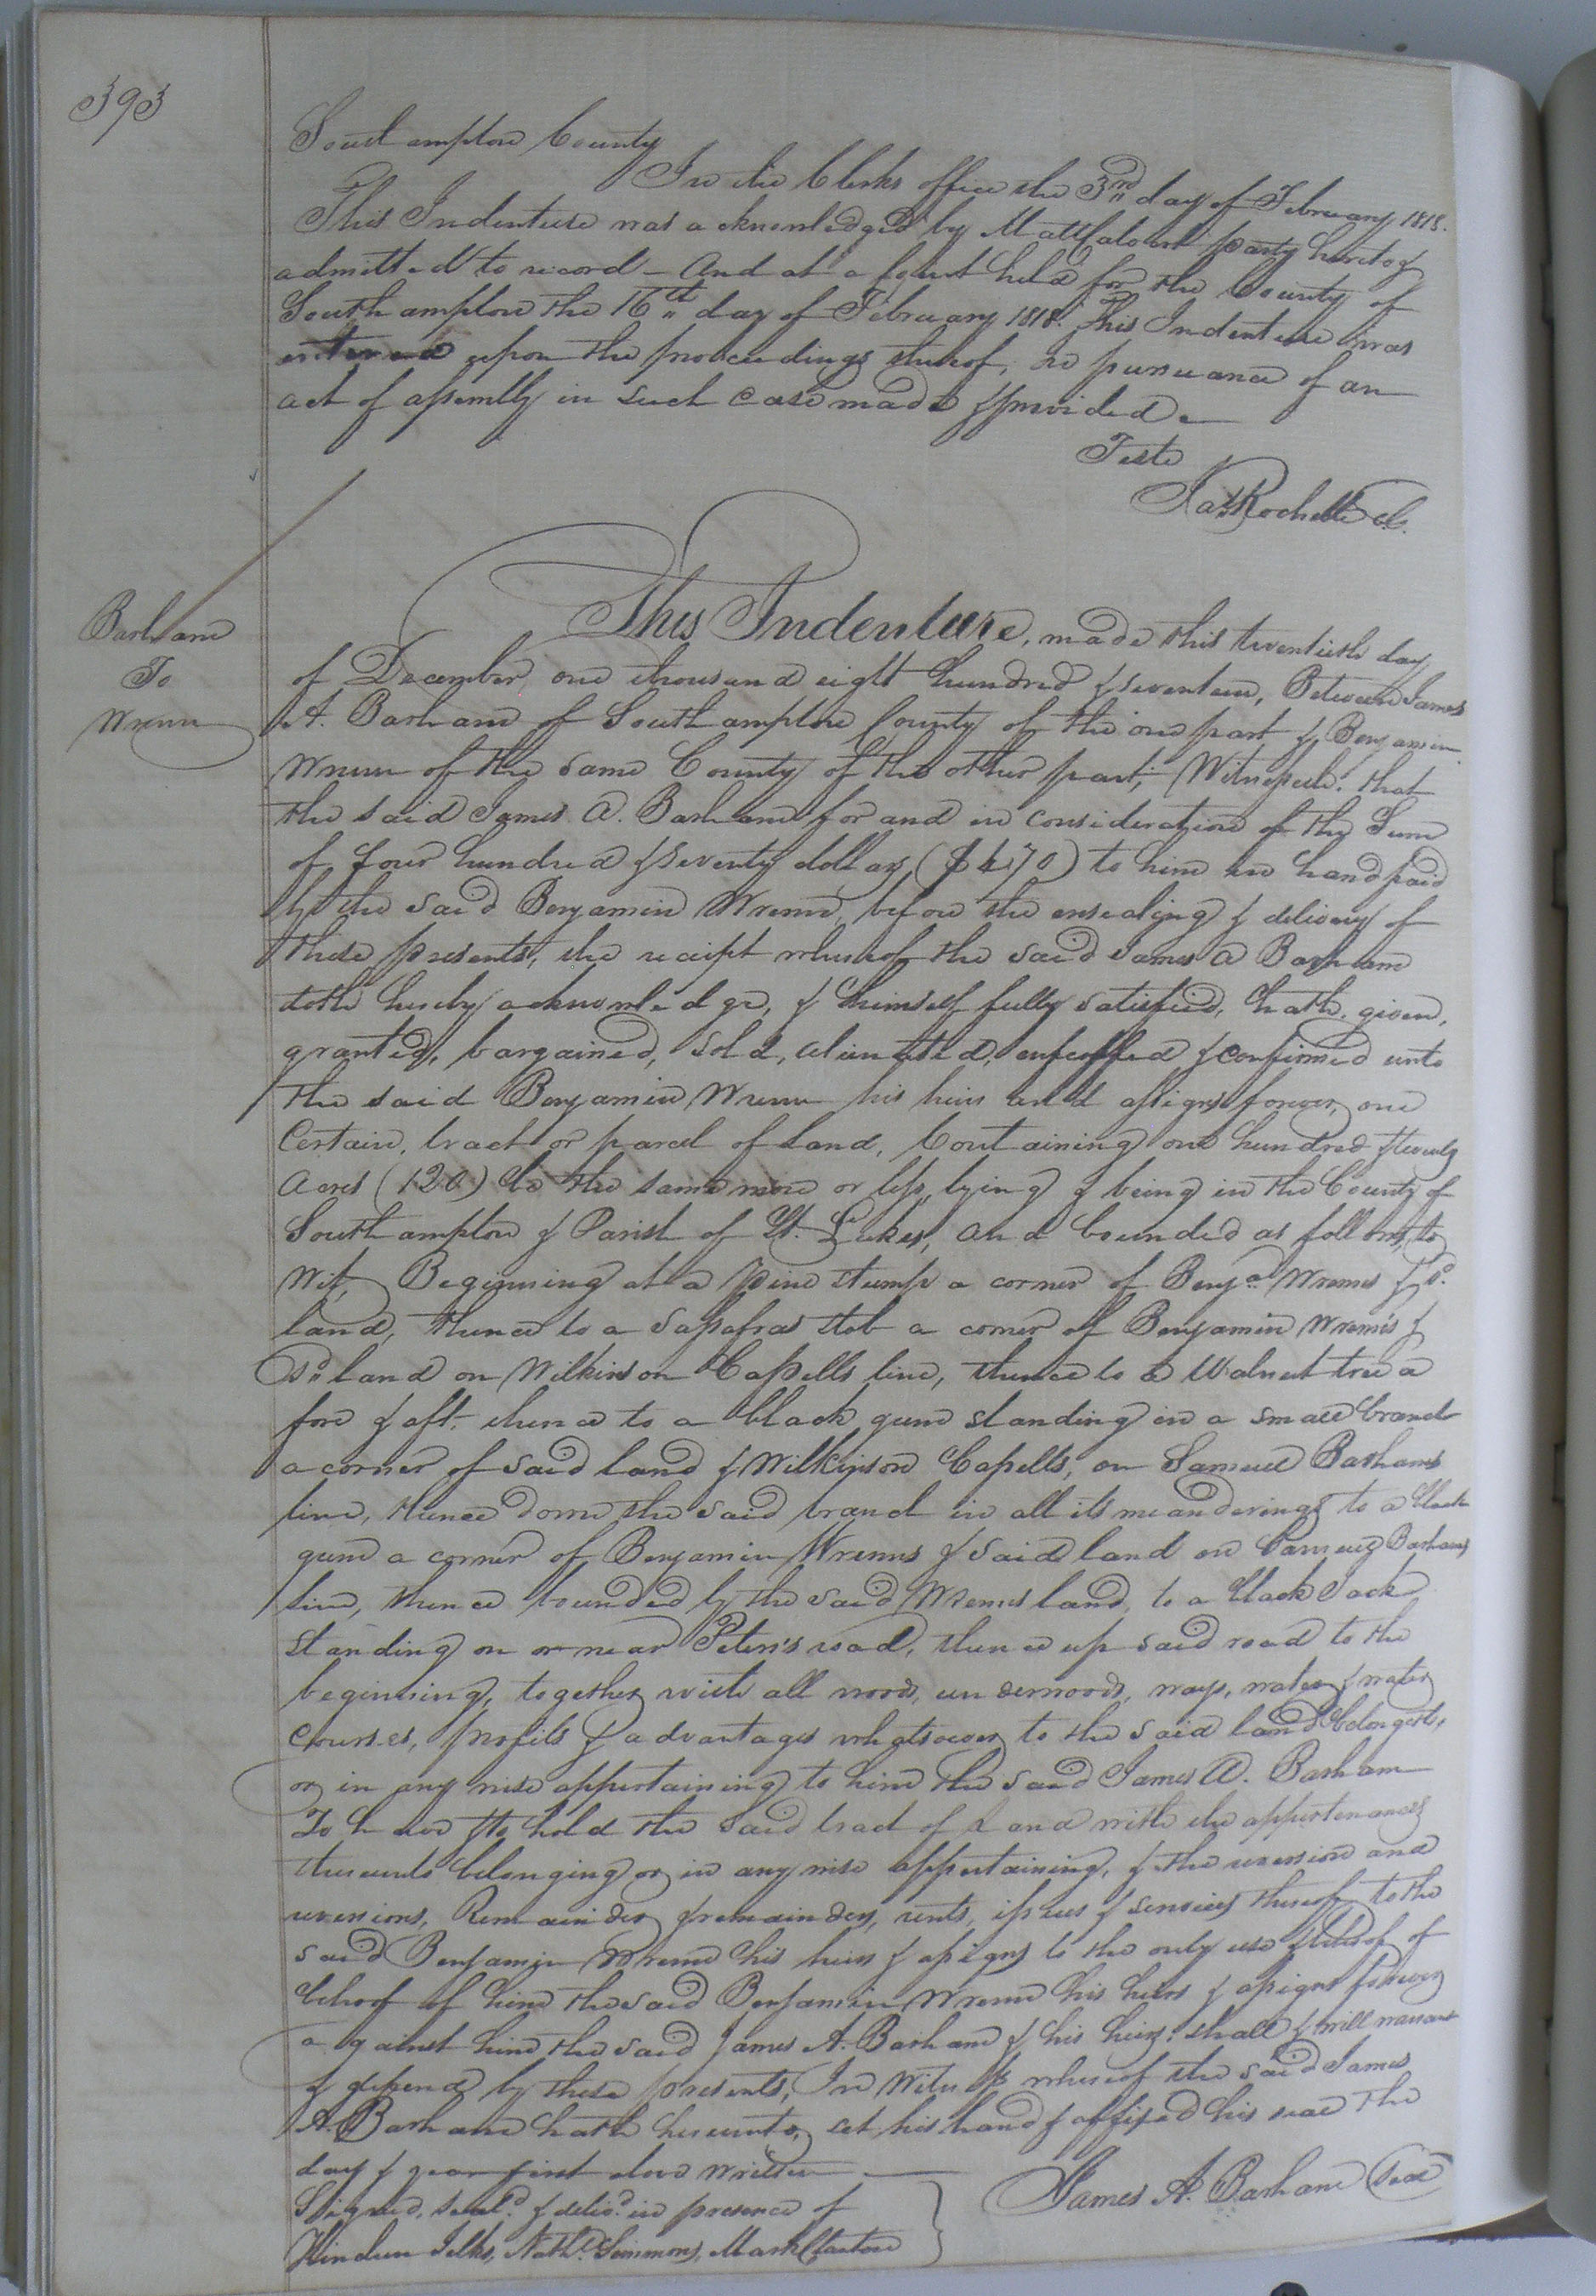 393
Southampton County
In the Clerks office the 3rd day of February 1818.
This Indenture was acknowledged by party hereto &
admitted to record - And at a Court held for the County of
Southampton the 16th day of February 1818. This Indenture was
entered upon the proceedings thereof, in pursuance of an
act of assembly in such case made & provided.
Teste
Jas Rochelle Cl.
Barham
To
Wrenn
This Indenture, made this twentieth day
of December, one thousand eight hundred & seventeen, Between James
A. Barham of Southampton County of the one part & Benjamin
Wrenn of the same County of the other part, Witnesseth. that
the said James A. Barham for and in consideration of the Sum
of four hundred & seventy dollars ($470) to him in hand paid
by the said Benjamin Wrenn, before the ensealing & delivery of
these presents, the receipt whereof the said James A Barham
doth hereby acknowledge, & himself fully satisfied, hath, given,
granted, bargained, sold, alienated, enfeoffed & confirmed unto
the said Benjamin Wrenn his heirs and assigns forever, one
Certain, tract or parcel of land, Containing one hundred & twenty
Acres (120) be the same more or less, lying & being in the County of
Southampton & Parish of St. Lukes, and bounded as follows, to
wit, Beginning at a pine stump a corner of Benja Wrenns & sd
land, thence to a Sassafras stob a corner of Benjamin Wrenn's &
sd land on Wilkinson Capells line, thence to a Walnut tree a
fore & aft, thence to a black gum standing in a small branch
a corner of said land & Wilkinson Capells, on Samuel Barhams
line, thence down the said branch in all its meanderings to a black
gum a corner of Benjamin Wrenns & said land on Samuel Barhams
line, thence bounded by the said Wrenns land, to a black Jack
standing on or near Peter's road, thence up said road to the
beginning, together with all woods, underwoods, ways, waters & water
courses, profits & advantages whatsoever to the said land belongeth,
or in any wise appertaining to him the said James A. Barham
To have & to hold the said tract of Land with the appurtenances
thereunto belonging or in any wise appertaining, & the reversion and
reversions, Remainder & remainders, rents, issues & services thereof to the
said Benjamin Wrenn his heirs & assigns to the only use & behoof of
behoof of him the said Benjamin Wrenn his heirs & assigns forever
against him the said James A. Barham & his heirs. shall & will warrant
& defend by these presents, In Witness whereof the said James
A. Barham hath hereunto, set his hand & affixed his seal the
day & year first above written
Signed, seald. & delivd. in presence of
James A. Barham (Seal)
Hindun Jelks, Nathl. Simmons, Mark Claxton